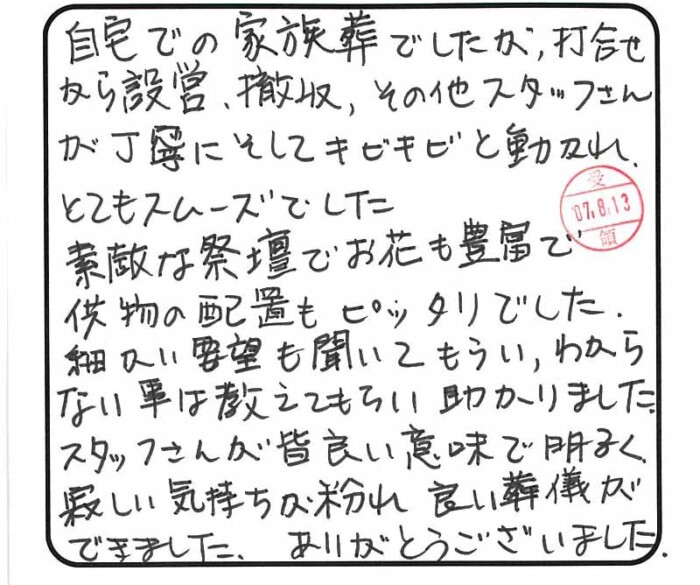 自宅での家族葬でしたが、打合せ
から設営、撤収、その他スタッフさん
が丁寧にそしてキビキビと動かれ、
とてもスムーズでした
受
07.8.13
領
素敵な祭壇でお花も豊富で
供物の配置もピッタリでした.
細かい要望も聞いてもらい,わから
ない事は教えてもらい助かりました.
スタッフさんが皆良い意味で明るく、
寂しい気持ちが紛れ 良い葬儀が
できました. ありがとうございました.